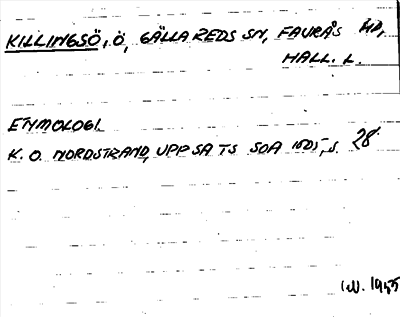 KILLINGSÖ, Ö, GÄLLAREDS SN, FAURÅS HD,
HALL. L.
ETYMOLOGI.
K. O. NORDSTRAND, UPPSATS SOA 1925, S. 28
1955